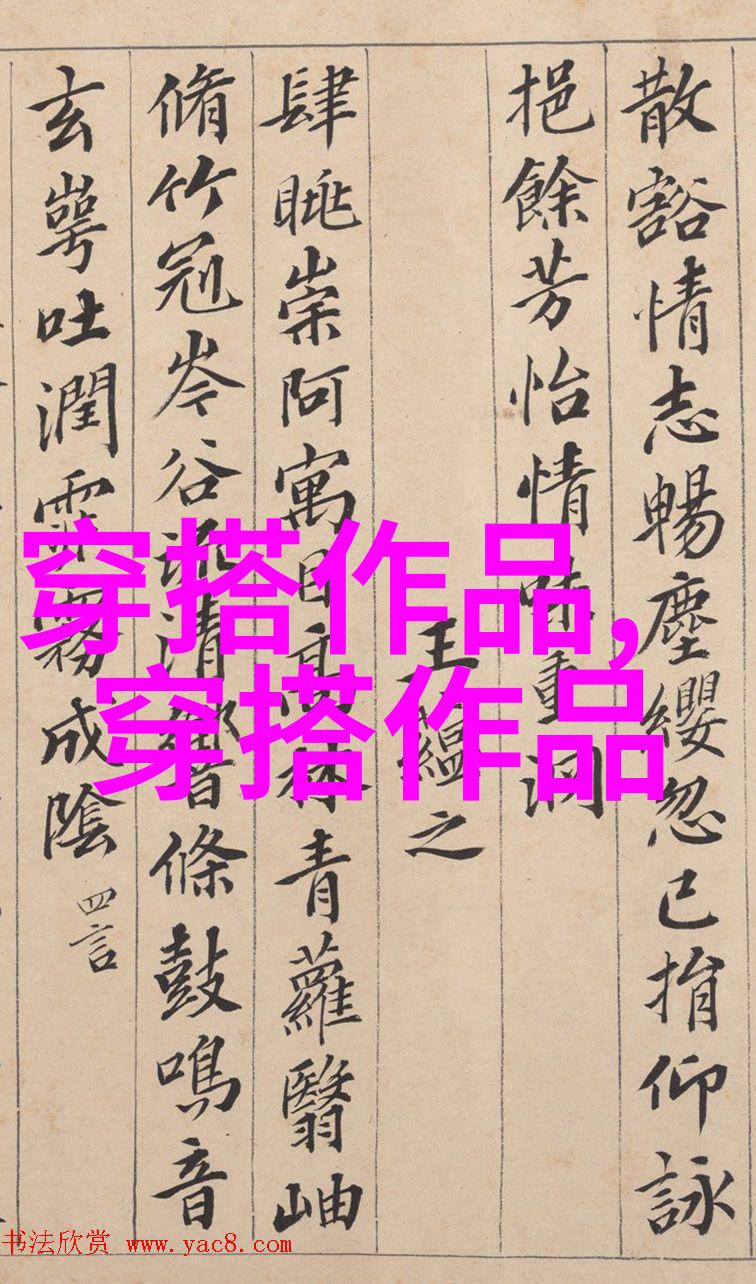 散豁情志暢塵纓忽已捐仰詠
挹餘芳怡情味重淵
王蘊之
肆眺崇阿寓目高林青蘿翳岫
脩竹冠岑谷流清響條鼓鳴音
玄崿吐潤霏霧成陰 四言
穿搭作品,
穿搭作品
书法欣赏 www.yac8.com